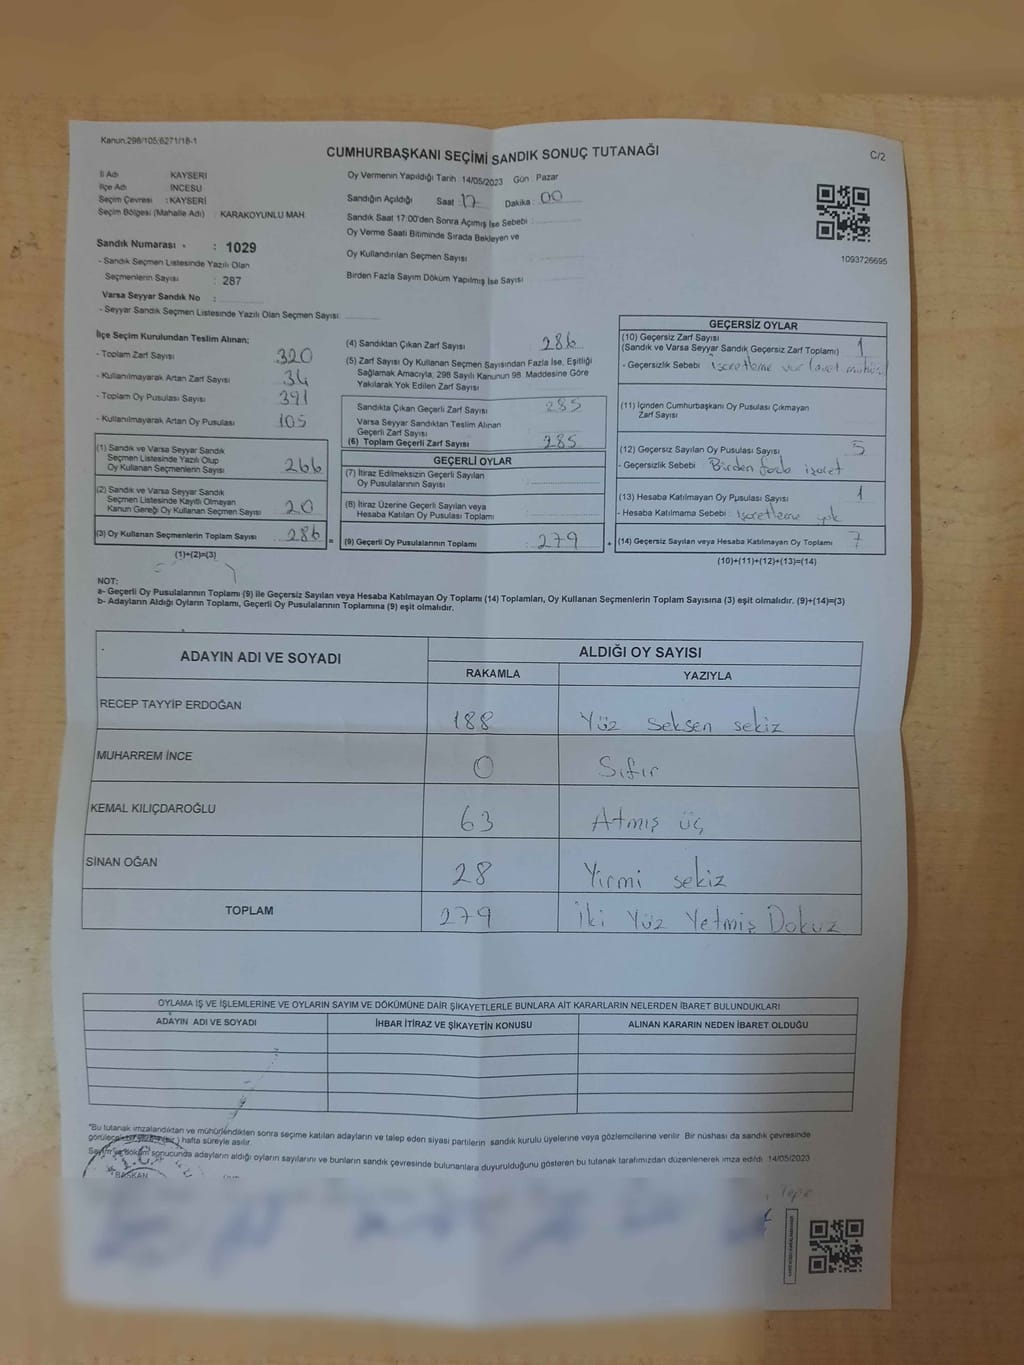 Kanun:298/105;6271/18-1
CUMHURBAŞKANI SEÇİMİ SANDIK SONUÇ TUTANAĞI
C/2
İl Adı KAYSERİ
İlçe Adı İNCESU
Seçim Çevresi : KAYSERİ
Seçim Bölgesi (Mahalle Adı) : KARAKOYUNLU MAH.
Sandık Numarası : 1029
- Sandık Seçmen Listesinde Yazılı Olan
Seçmenlerin Sayısı : 287
Varsa Seyyar Sandık No :
- Seyyar Sandık Seçmen Listesinde Yazılı Olan Seçmen Sayısı
Oy Vermenin Yapıldığı Tarih 14/05/2023 Gün Pazar
Sandığın Açıldığı Saat 17 Dakika : 00
Sandık Saat 17:00'den Sonra Açımış İse Sebebi
Oy Verme Saati Bitiminde Sırada Bekleyen ve
Oy Kullandırılan Seçmen Sayısı
Birden Fazla Sayım Döküm Yapılmış İse Sayısı
1093726695
İlçe Seçim Kurulundan Teslim Alınan;
- Toplam Zarf Sayısı 320
- Kullanılmayarak Artan Zarf Sayısı 34
- Toplam Oy Pusulası Sayısı 391
- Kullanılmayarak Artan Oy Pusulası 105
(1) Sandık ve Varsa Seyyar Sandık
Seçmen Listesinde Yazılı Olup
Oy Kullanan Seçmenlerin Sayısı 266
(2) Sandık ve Varsa Seyyar Sandık
Seçmen Listesinde Kayıtlı Olmayan
Kanun Gereği Oy Kullanan Seçmen Sayısı 20
(3) Oy Kullanan Seçmenlerin Toplam Sayısı 286 =
(1)+(2)=(3)
(4) Sandıktan Çıkan Zarf Sayısı 286
(5) Zarf Sayısı Oy Kullanan Seçmen Sayısından Fazla İse, Eşitliği
Sağlamak Amacıyla, 298 Sayılı Kanunun 98. Maddesine Göre
Yakılarak Yok Edilen Zarf Sayısı
Sandıkta Çıkan Geçerli Zarf Sayısı 285
Varsa Seyyar Sandıktan Teslim Alınan
Geçerli Zarf Sayısı
(6) Toplam Geçerli Zarf Sayısı 285
GEÇERLİ OYLAR
(7) İtiraz Edilmeksizin Geçerli Sayılan
Oy Pusulalarının Sayısı
(8) İtiraz Üzerine Geçerli Sayılan veya
Hesaba Katılan Oy Pusulası Toplamı
(9) Geçerli Oy Pusulalarının Toplamı : 279 +
GEÇERSİZ OYLAR
(10) Geçersiz Zarf Sayısı
(Sandık ve Varsa Seyyar Sandık Geçersiz Zarf Toplamı) 1
- Geçersizlik Sebebi işaretleme var
(11) İçinden Cumhurbaşkanı Oy Pusulası Çıkmayan
Zarf Sayısı
(12) Geçersiz Sayılan Oy Pusulası Sayısı 5
- Geçersizlik Sebebi Birden fazla işaret
(13) Hesaba Katılmayan Oy Pusulası Sayısı 1
- Hesaba Katılmama Sebebi işaretleme yok
(14) Geçersiz Sayılan veya Hesaba Katılmayan Oy Toplamı 7
(10)+(11)+(12)+(13)=(14)
NOT:
a- Geçerli Oy Pusulalarının Toplamı (9) ile Geçersiz Sayılan veya Hesaba Katılmayan Oy Toplamı (14) Toplamları, Oy Kullanan Seçmenlerin Toplam Sayısına (3) eşit olmalıdır. (9)+(14)=(3)
b- Adayların Aldığı Oyların Toplamı, Geçerli Oy Pusulalarının Toplamına (9) eşit olmalıdır.
ADAYIN ADI VE SOYADI ALDIĞI OY SAYISI
RAKAMLA YAZIYLA
RECEP TAYYİP ERDOĞAN 188 Yüz seksen sekiz
MUHARREM İNCE 0 Sıfır
KEMAL KILIÇDAROĞLU 63 Atmış üç
SİNAN OĞAN 28 Yirmi sekiz
TOPLAM 279 İki Yüz Yetmiş Dokuz
OYLAMA İŞ VE İŞLEMLERİNE VE OYLARIN SAYIM VE DÖKÜMÜNE DAİR ŞİKAYETLERLE BUNLARA AİT KARARLARIN NELERDEN İBARET BULUNDUKLARI
ADAYIN ADI VE SOYADI İHBAR İTİRAZ VE ŞİKAYETİN KONUSU ALINAN KARARIN NEDEN İBARET OLDUĞU
"Bu tutanak imzalandıktan ve mühürlendikten sonra seçime katılan adayların ve talep eden siyasi partilerin sandık kurulu üyelerine veya gözlemcilerine verilir. Bir nüshası da sandık çevresinde
görülecek bir yere 1 (bir) hafta süreyle asılır.
Sayım ve döküm sonucunda adayların aldığı oyların sayılarını ve bunların sandık çevresinde bulunanlara duyurulduğunu gösteren bu tutanak tarafımızdan düzenlenerek imza edildi. 14/05/2023
T.C.
BAŞKAN